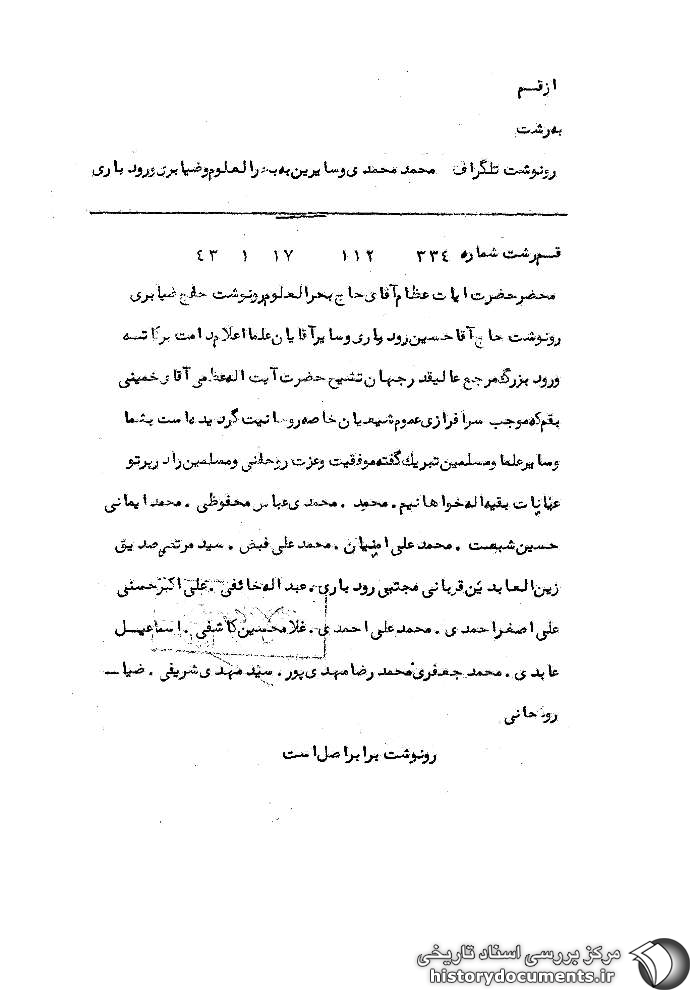 از قسم
به رشت
رونوشت تلگراف محمد محمدی و سایرین به بحرالعلوم و ضیابری و رودباری
قسم رشت شماره ٣٣٤ ١١٢ ١٧ ١ ٤٣
محضر حضرت ایات عظام آقای حاج بحرالعلوم رونوشت حاج ضیابری
رونوشت حاج آقا حسین رودباری و سایر آقایان علما اعلام دامت برکاته
ورود بزرگ مرجع عالیقدر جهان تشیع حضرت آیت اله عظمی آقای خمینی
بقم که موجب سرافرازی عموم شیعیان خاصه روسانیت گردیده است بشما
و سایر علما و مسلمین تبریك گفته موفقیت و عزت روحانی و مسلمین را در پرتو
عنایات بقیه اله خواهانیم . محمد . محمدی عباس محفوظی . محمد ایمانی
حسین شبصت . محمد علی امنیان . محمد علی فیض . سید مرتضی صدیق
زین العابدین قربانی مجتبی رودباری . عبداله خائفی . علی اکبر حسنی
علی اصغر احمدی . محمد علی احمدی . غلامحسین کاشفی . اسماعیل
عابدی . محمد جعفری محمد رضا مهدی پور . سید مهدی شریفی . ضیا
روحانی
رونوشت برابر اصل است
مرکز بررسی اسناد تاریخی
historydocuments.ir